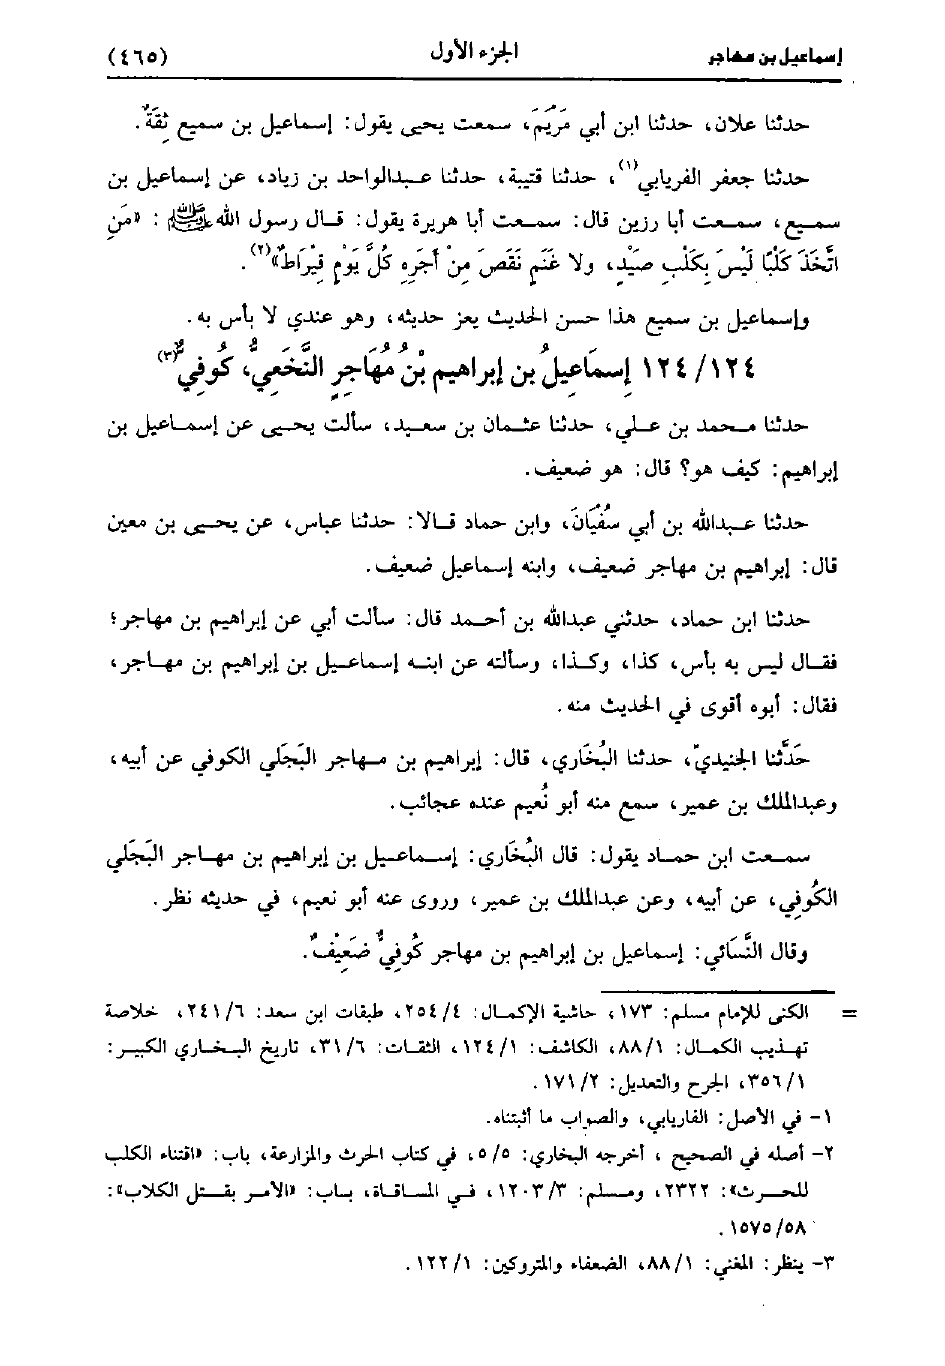 إسماعيل بن مهاجر الجزء الأول (٤٦٥)
حدثنا علان، حدثنا ابن أبي مَرْيَمَ، سمعت يحيى يقول: إسماعيل بن سميع ثِقَةٌ.
حدثنا جعفر الفريابي(١)، حدثنا قتيبة، حدثنا عبدالواحد بن زياد، عن إسماعيل بن
سميع، سمعت أبا رزين قال: سمعت أبا هريرة يقول: قال رسول الله ﷺ: «مَنِ
اتَّخَذَ كَلْبًا لَيْسَ بِكَلْبِ صَيْدٍ، ولا غَنَمٍ نَقَصَ مِنْ أَجَرِهِ كُلَّ يَوْمٍ قِيْرَاطٌ»(٢).
وإسماعيل بن سميع هذا حسن الحديث يعز حديثه، وهو عندي لا بأس به.
١٢٤/ ١٢٤ إِسمَاعيلُ بن إبراهيم بْنُ مُهَاجِرِ النَّخَعِيُّ، كُوفِيٌّ(٣)
حدثنا محمد بن علي، حدثنا عثمان بن سعيد، سألت يحيى عن إسماعيل بن
إبراهيم: كيف هو؟ قال: هو ضعيف.
حدثنا عبدالله بن أبي سُفْيَانَ، وابن حماد قالا: حدثنا عباس، عن يحيى بن معين
قال: إبراهيم بن مهاجر ضعيف، وابنه إسماعيل ضعيف.
حدثنا ابن حماد، حدثني عبدالله بن أحمد قال: سألت أبي عن إبراهيم بن مهاجر؛
فقال ليس به بأس، كذا، وكذا، وسألته عن ابنه إسماعيل بن إبراهيم بن مهاجر،
فقال: أبوه أقوى في الحديث منه.
حَدَّثنا الجنيديّ، حدثنا البُخَاري، قال: إبراهيم بن مهاجر البَجَلي الكوفي عن أبيه،
وعبدالملك بن عمير، سمع منه أبو نُعيم عنده عجائب.
سمعت ابن حماد يقول: قال البُخَاري: إسماعيل بن إبراهيم بن مهاجر البَجَلي
الكُوفِي، عن أبيه، وعن عبدالملك بن عمير، وروى عنه أبو نعيم، في حديثه نظر.
وقال النَّسَائي: إسماعيل بن إبراهيم بن مهاجر كُوفِيٌّ ضَعِيْفٌ.
= الكنى للإمام مسلم: ١٧٣، حاشية الإكمال: ٢٥٤/٤، طبقات ابن سعد: ٢٤١/٦، خلاصة
تهذيب الكمال: ٨٨/١، الكاشف: ١٢٤/١، الثقات: ٣١/٦، تاريخ البخاري الكبير:
٣٥٦/١، الجرح والتعديل: ١٧١/٢.
١- في الأصل: الفاريابي، والصواب ما أثبتناه.
٢- أصله في الصحيح ، أخرجه البخاري: ٥/٥، في كتاب الحرث والمزارعة، باب: «اقتناء الكلب
للحرث»: ٢٣٢٢، ومسلم: ١٢٠٣/٣، في المساقاة، باب: «الأمر بقتل الكلاب»:
١٥٧٥/٥٨.
٣- ينظر: المغني: ٨٨/١، الضعفاء والمتروكين: ١٢٢/١.